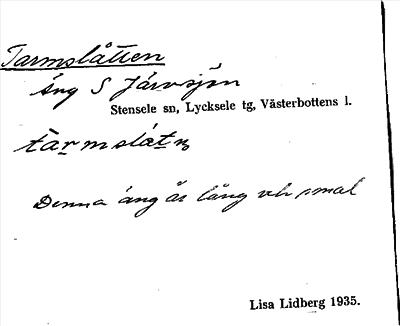 Tarmslåtten
äng S Järvsjön
Stensele sn, Lycksele tg, Västerbottens l.
tarmslåtn
Denna äng är lång och smal
Lisa Lidberg 1935.